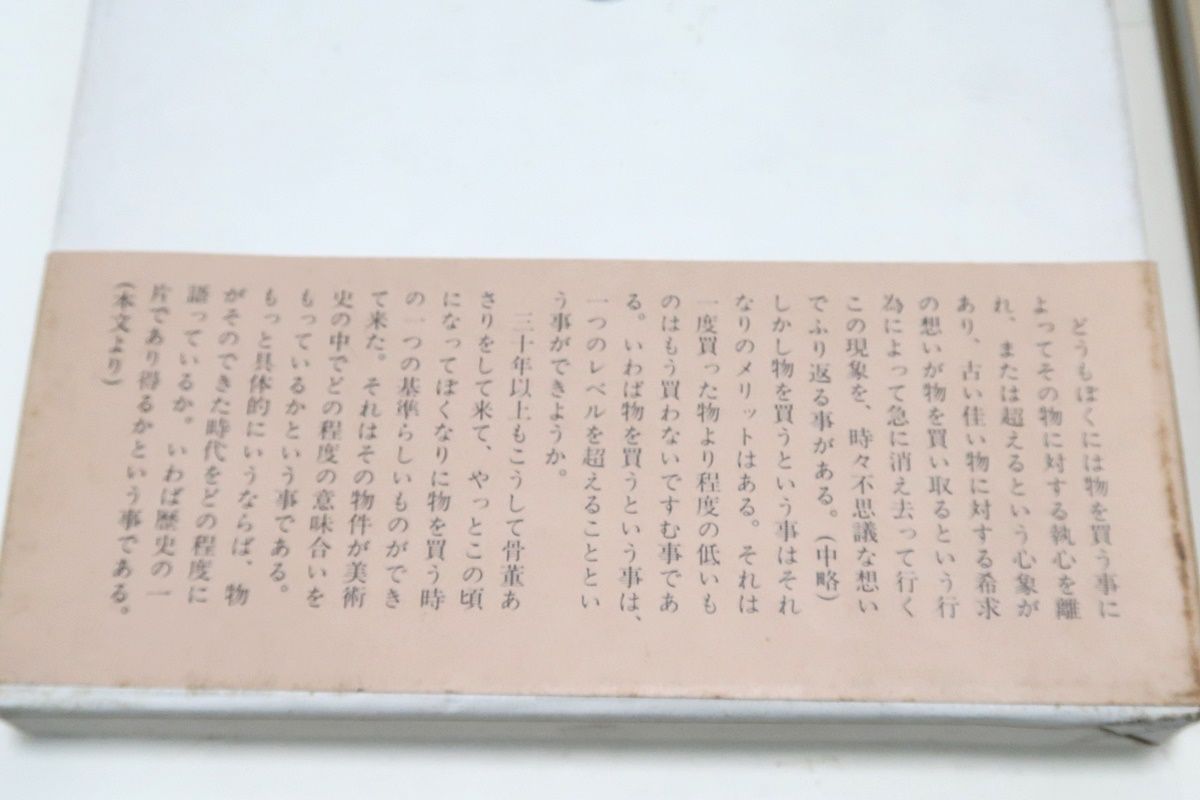 どうもぼくには物を買う事に
よってその物に対する執心を離
れ、または超えるという心象が
あり、古い佳い物に対する希求
の想いが物を買い取るという行
為によって急に消え去って行く
この現象を、時々不思議な想い
でふり返る事がある。(中略)
しかし物を買うという事はそれ
なりのメリットはある。それは
一度買った物より程度の低いも
のはもう買わないですむ事であ
る。いわば物を買うという事は、
一つのレベルを超えることとい
う事ができようか。
三十年以上もこうして骨董あ
さりをして来て、やっとこの頃
になってぼくなりに物を買う時
の一つの基準らしいものができ
て来た。それはその物件が美術
史の中でどの程度の意味合いを
もっているかという事である。
もっと具体的にいうならば、物
がそのできた時代をどの程度に
語っているか。いわば歴史の一
片であり得るかという事である。
(本文より)